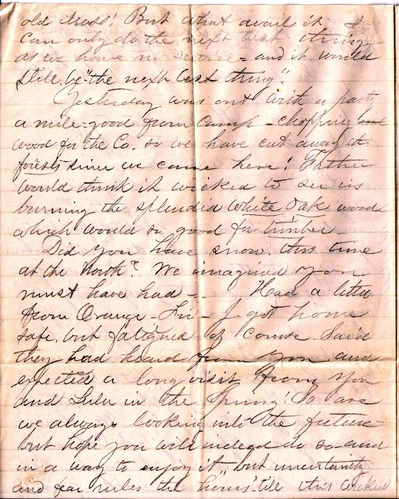 old Mass! But what avail it I
can only do the next best thing
as we have no - and it would
still be "the next best thing".
Yesterday was out with a party
a mile good from camp - chopping
wood for the Co. so we have cut away the
forests since we came here! Father
would think it wicked to see us
burning the splendid White Oak wood
which would so good for timber -
Did you have snow this time
at the North? We imagined you
must have had - Had a letter
from Orange - got home
safe, but fatigued of course. Said
they had heard from you and
expected a long visit from you
and Lulu in the Spring! So are
we always looking into the future
but hope you will indeed do so and
in a way to enjoy it, but uncertainty
and fear rules the hours till this